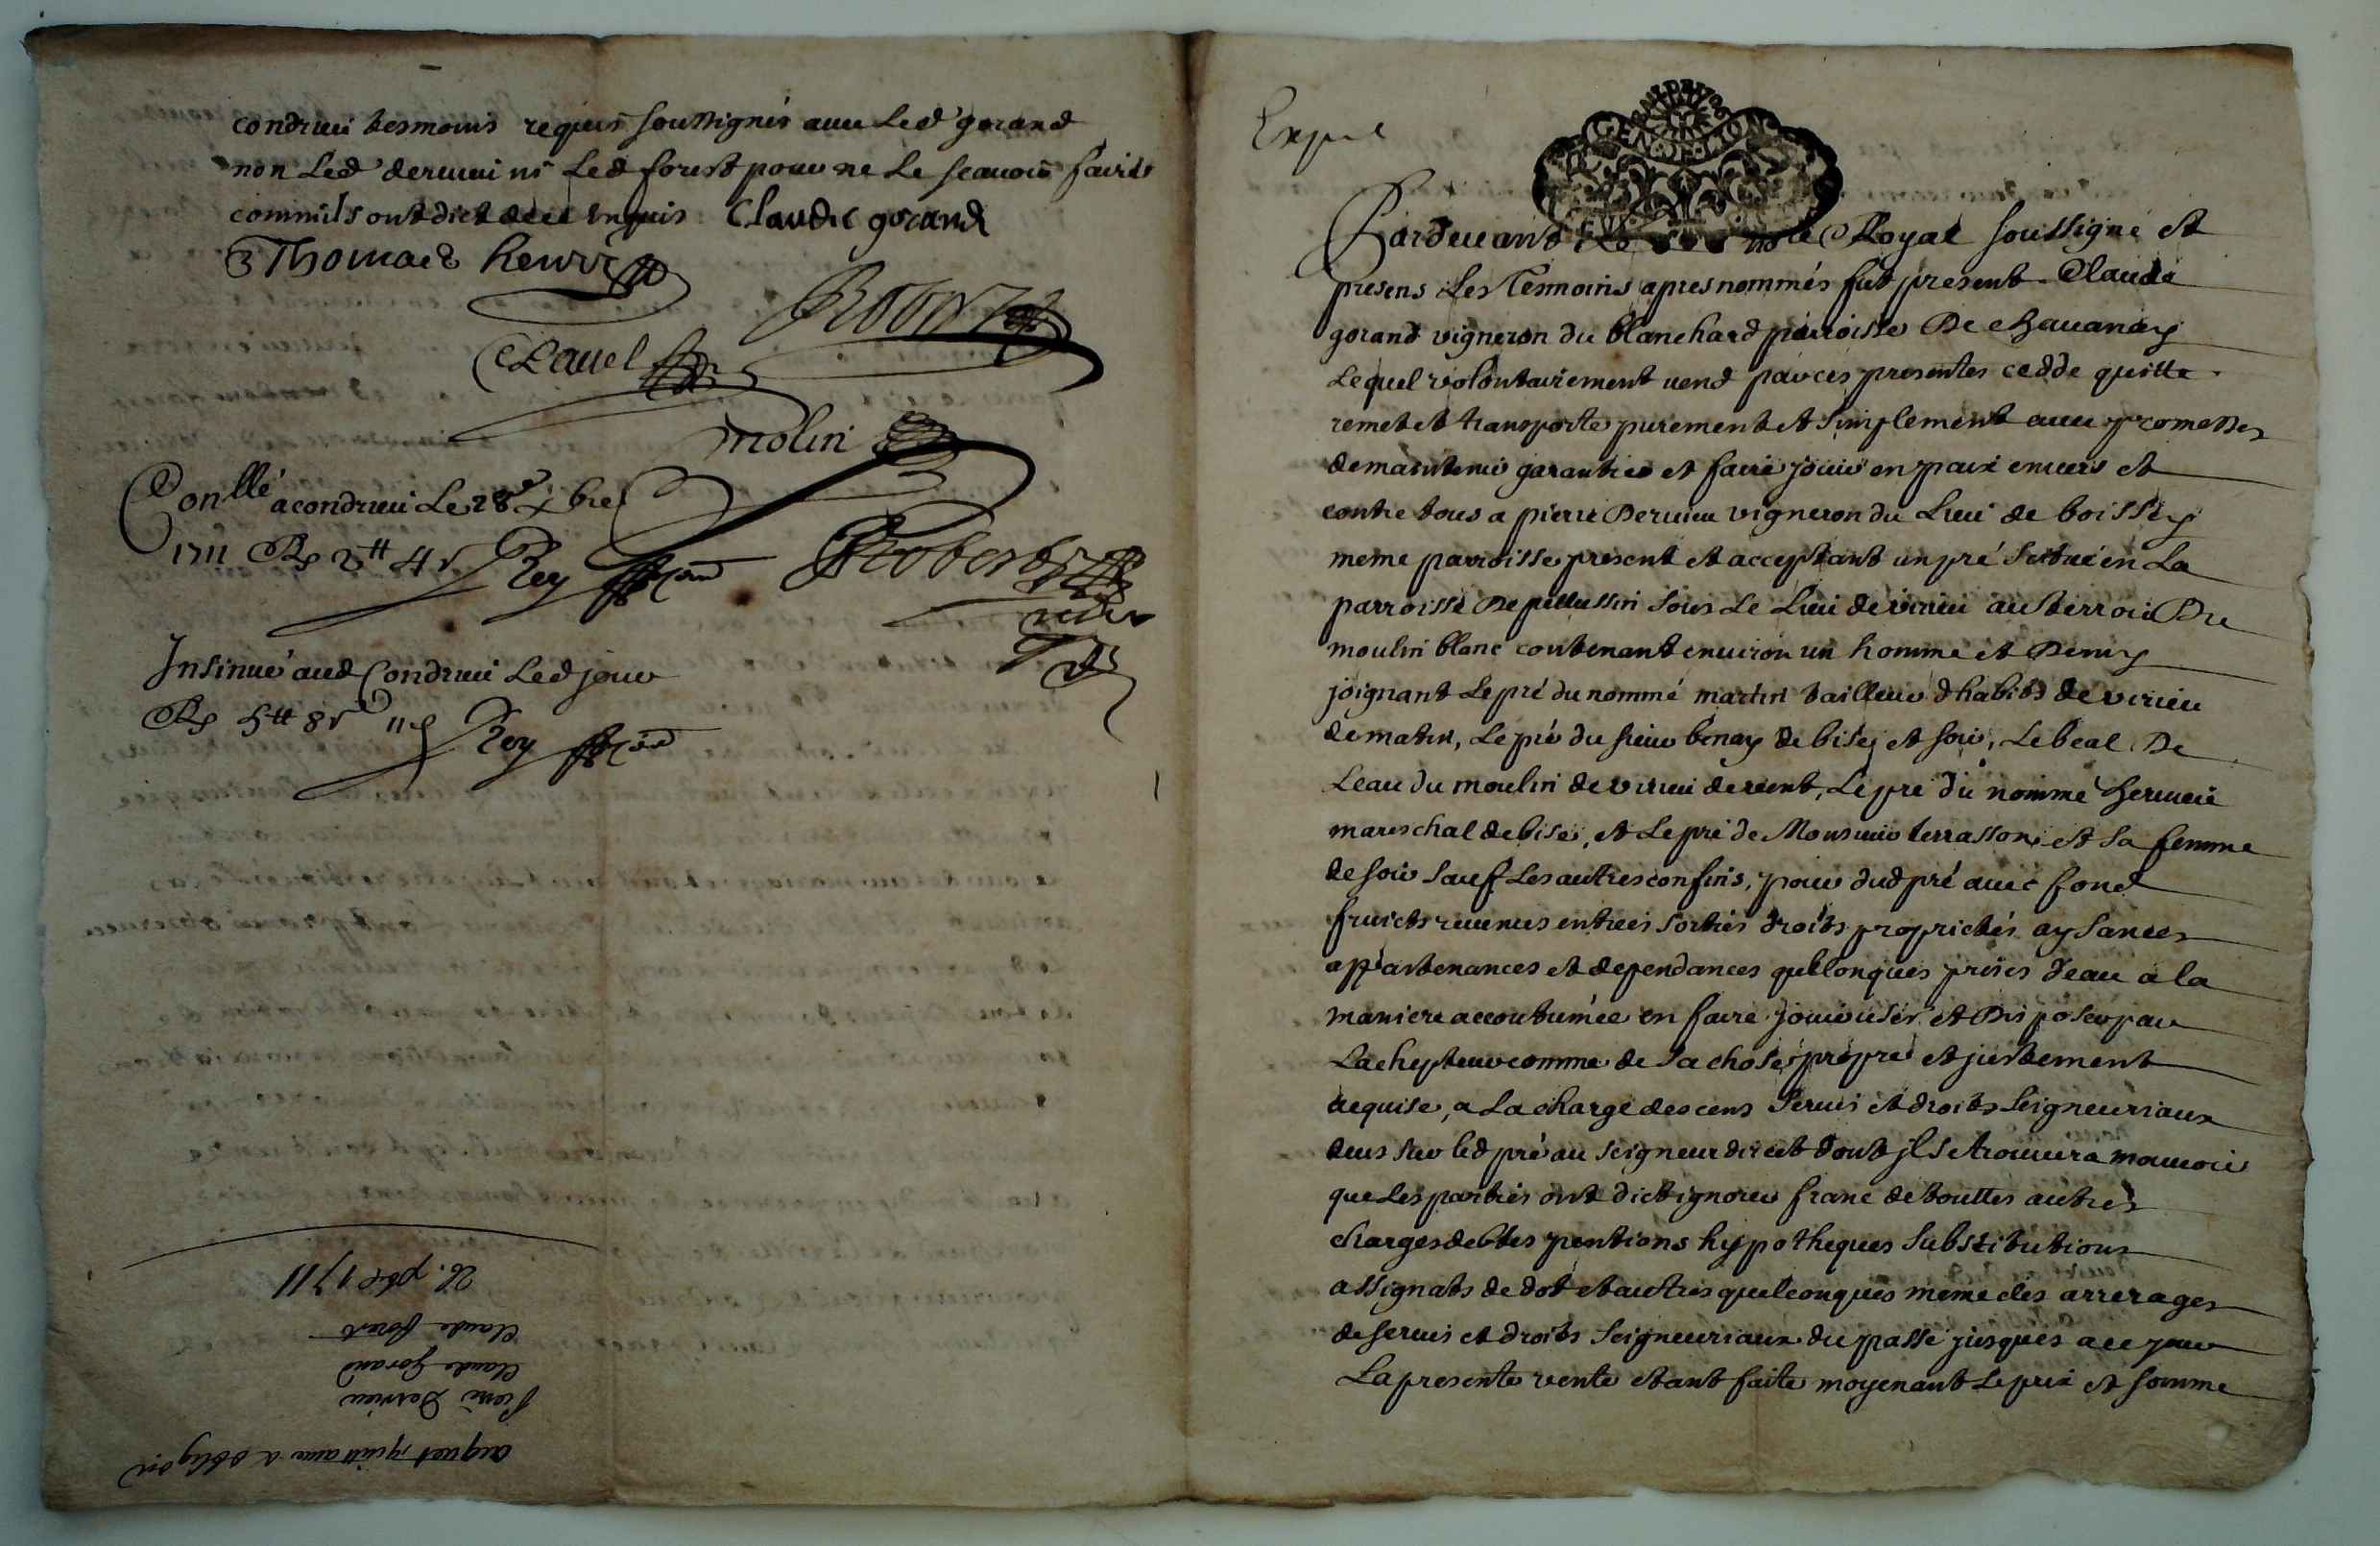 condrieu tesmoins requis soussignés avec led gorand
non led dervieu ni led forest pour ne le scavoir faire
comm ils ont dict de ce enquis Claude gorand
Thomas henri
Robert
Clavel
molin
Conllé a condrieu le 28e xbre
1711 R 2tt 4s Rey
Robert
nore
Insinué aud Condrieu led jour
R 5tt 8s Rey
acquet quittance et obligon
pierre Dervieu
Claude Gorand
Claude forest
28. xbre 1711
Expié
GEN DE LYON
Pardevant le no.re Royal soussigné et
presens les Tesmoins apres nommés fut present Claude
gorand vigneron du blanchard parroisse De chavanay
Lequel volontairement vend par ces presentes cedde quitte
remet et transporte purement et simplement avec promesses
de maintenir garantier et faire jouir en paix envers et
contre tous a pierre Dervieu vigneron du Lieu de boissey
meme parroisse present et acceptant un pré situé en La
parroisse De pellussin sous Le Lieu de virieu au terroir Du
moulin blanc contenant environ un homme et Demy
joignant Le pré du nommé martin tailleur d habits de virieu
de matin, Le pré du sieur benay de bise et soir, Le béal De
Leau du moulin de virieu de vent, Le pré du nommé hervieu
mareschal de bise, et Le pré de Monsieur terrasson et sa femme
de soir sauf Les autres confins, pour dud pré avec fond
fruicts revenus entrees sorties droits proprietés aysances
appartenances et dependances quelconques prises d'eau a la
maniere accoutumée en faire jouir user et Disposer par
Lachepteur comme de sa chose propre et justement
acquise, a La charge des cens servis et droits seigneuriaux
deus sur led pré au seigneur direct dont jl se trouvera mouvoir
que Les parties ont dict ignorer franc de touttes autres
charges debtes pentions hypotheques substitutions
assignats de dot et autres quelconques meme des arrerages
de servis et droits seigneuriaux du passé jusques a ce jour
La presente vente etant faite moyenant Le prix et somme